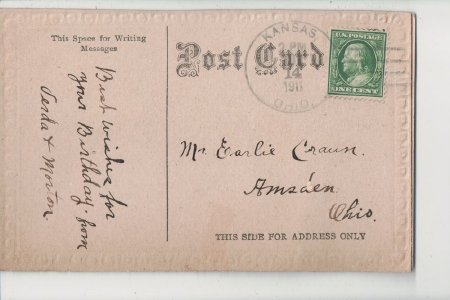 This Space for Writing
Messages
Post Card
KANSAS
2 PM
14
1911
OHIO.
U.S. POSTAGE
ONE CENT
Best wishes for
your Birthday. from
Morton.
Mr. Earlie Craun.
Amsden
Ohio.
THIS SIDE FOR ADDRESS ONLY